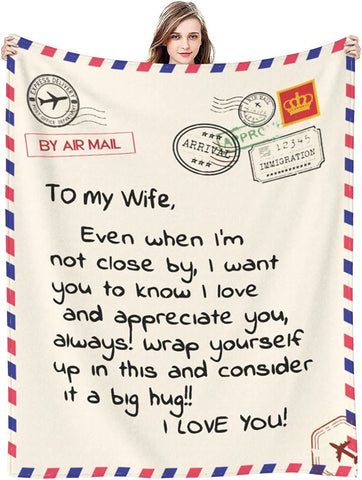 EXPRESS DELIVERY
BY AIR MAIL
ARRIVAL
APPRO
12345
IMMIGRATION
To my Wife,
Even when I'm
not close by, I want
you to know I love
and appreciate you,
always! wrap yourself
up in this and consider
it a big hug!!
I LOVE YOU!